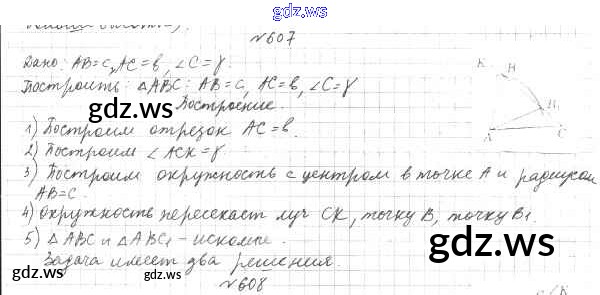 gdz.ws
№607
Дано: AB=c, AC=b, ∠C=γ.
Построить: △ABC: AB=c, AC=b, ∠C=γ
Построение.
1) Построим отрезок AC=b.
2) Построим ∠ACK=γ
3) Построим окружность с центром в точке A и радиусом
AB=C.
4) Окружность пересекает луч CK, точку B, точку B₁.
5) △ABC и △ABC₁ - искомые.
Задача имеет два решения.
№608
K
H
B₁
A
C
gdz.ws
gdz.ws
gdz.ws
gdz.ws